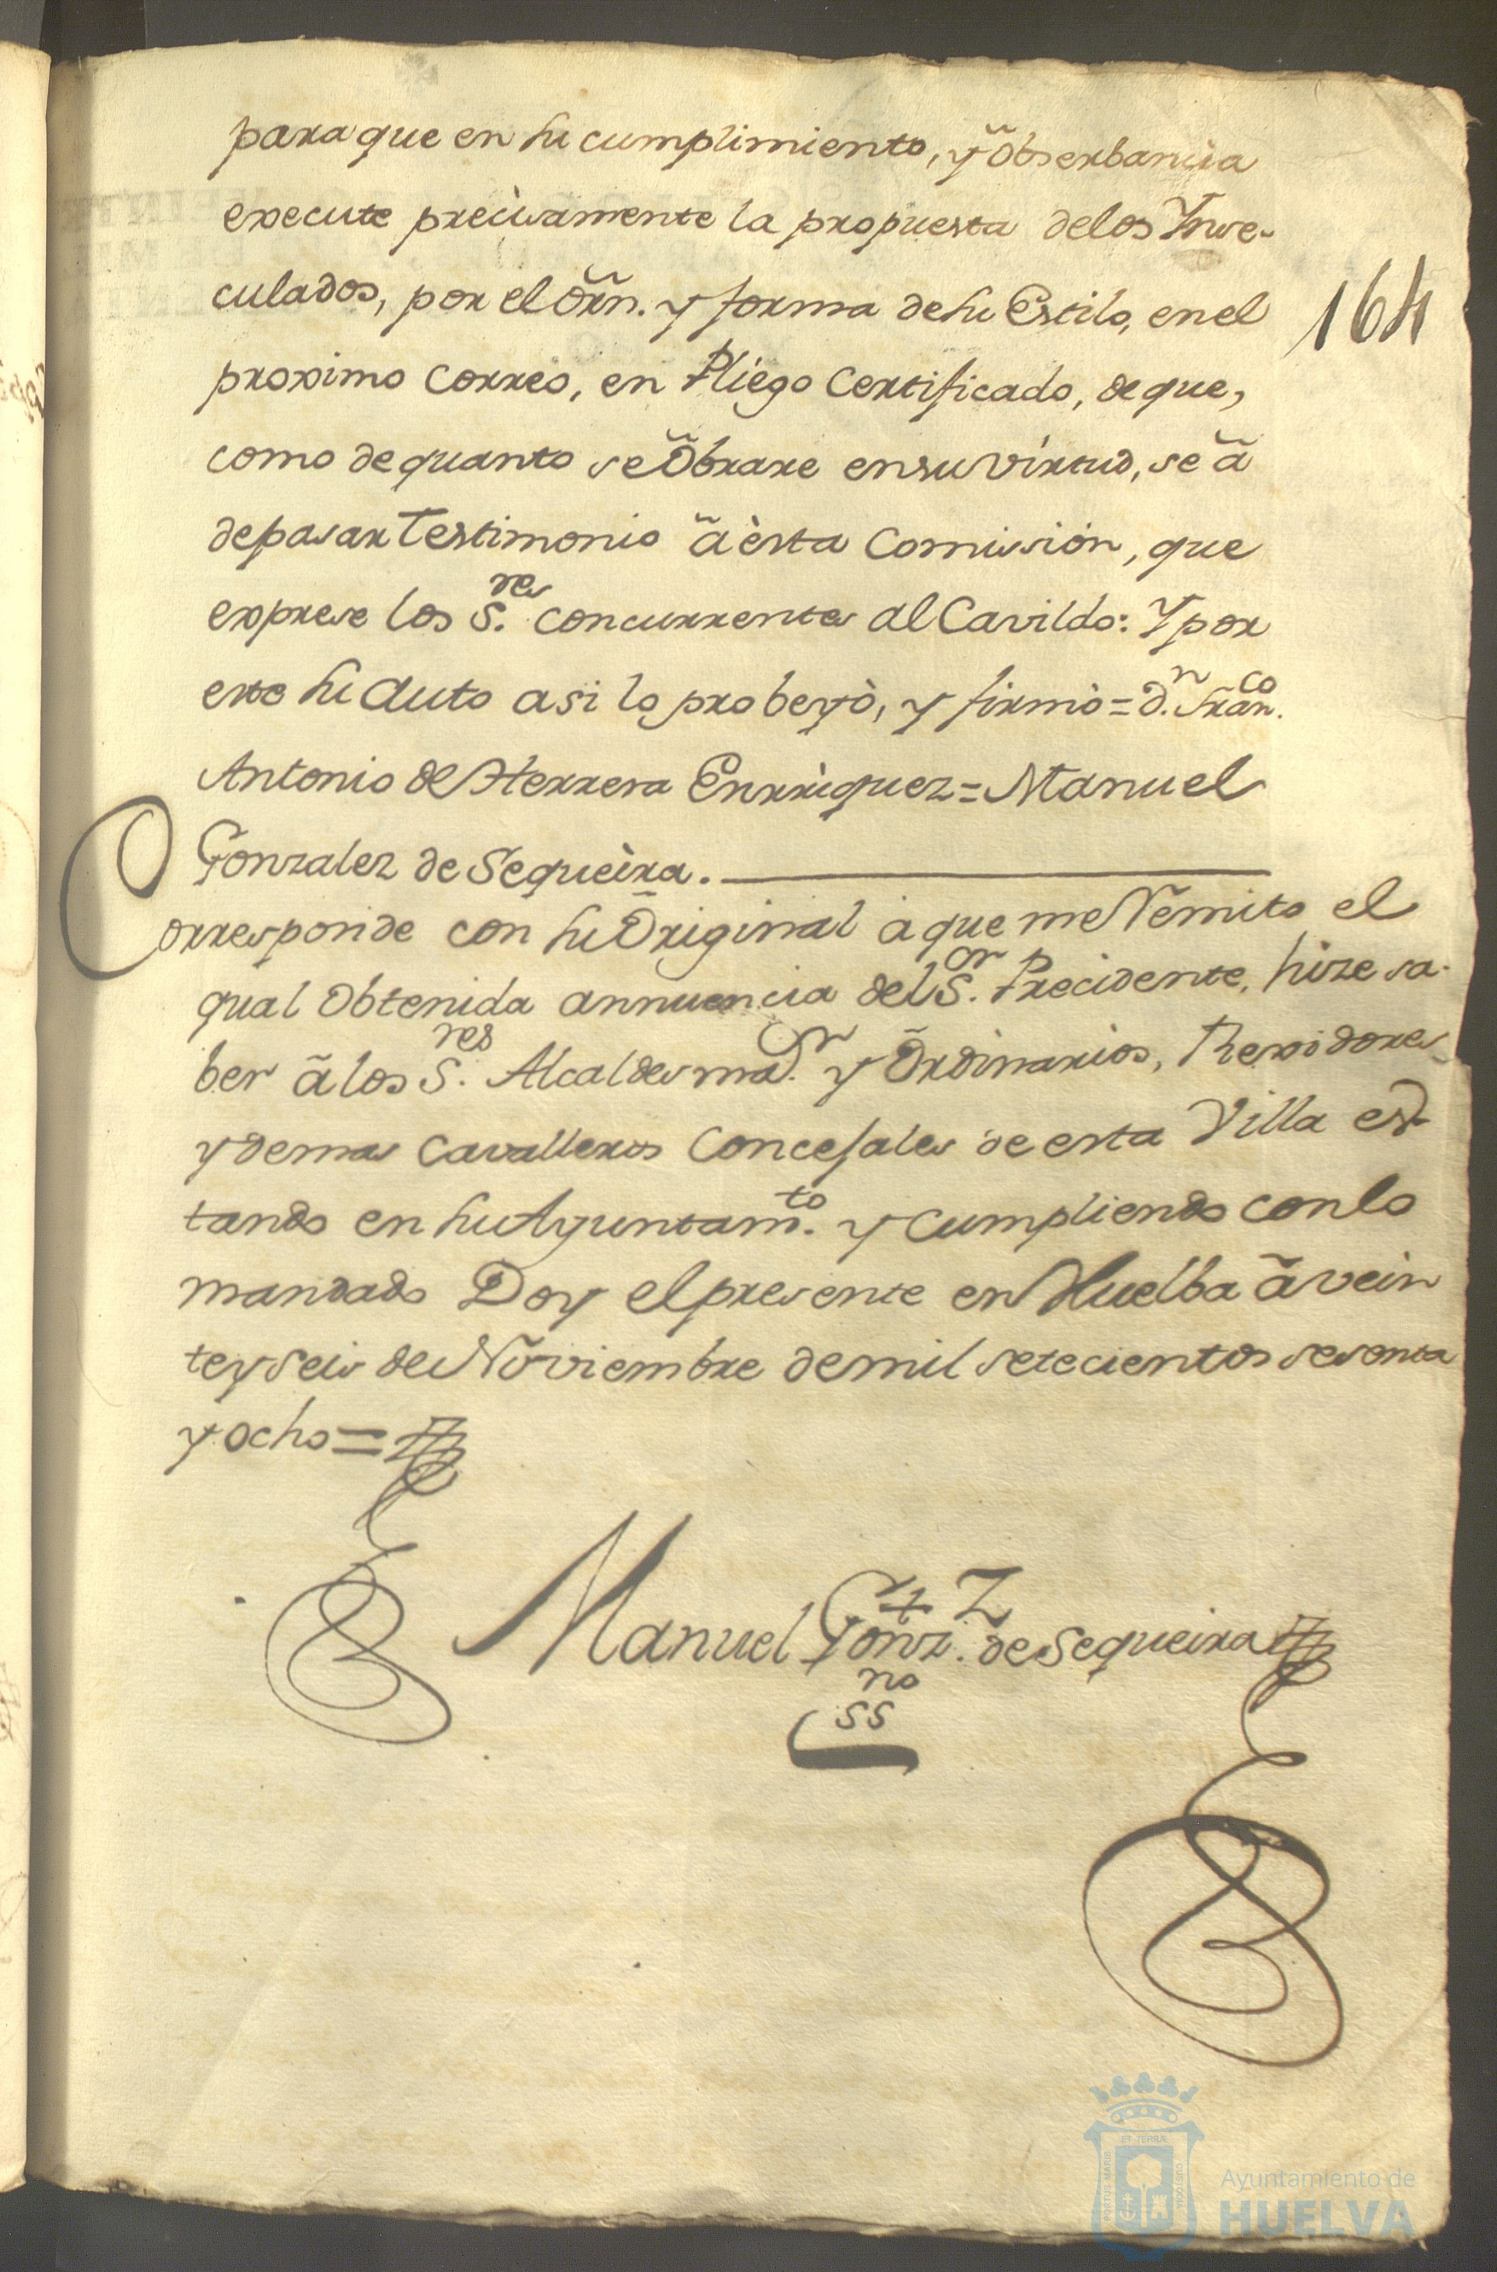 para que en su cumplimiento, y õbserbancia
execute precisamente la propuesta delos Ynse-
culados, por el õrn. y forma de su Estilo, en el
proximo correo, en Pliego Certificado, de que,
como de quanto se õbrare en su virtud, se ã
de pasar Testimonio ã èsta Comission, que
exprese los S.res concurrentes al Cavildo: Y por
este su auto asi lo probeyò, y firmò = D.n Fran.co
Antonio de Herrera Enrriquez = Manuel
Gonzalez de Sequeira.
Corresponde con su Õriginal à que me Remito el
qual Obtenida annuencia del S.or Precidente, hize sa-
ber ã los S.res Alcaldes ma.r y Õrdinarios, Rexidores
y demas Cavalleros Concejales de esta Villa es-
tando en su Ayuntam.to y cumpliendo con lo
mandado Doy el presente en Huelba ã vein
te y seis de Noviembre de mil setecientos sesenta
y ocho =
Manuel Gonz.z de Sequeira
ss.no
164
Ayuntamiento de
HUELVA
PORTUS MARIS
ET TERRÆ
CUSTODIA